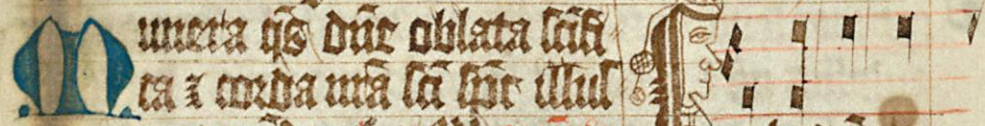 Munera qs dne oblata scifi
ca ⁊ corda nra sci spc illus